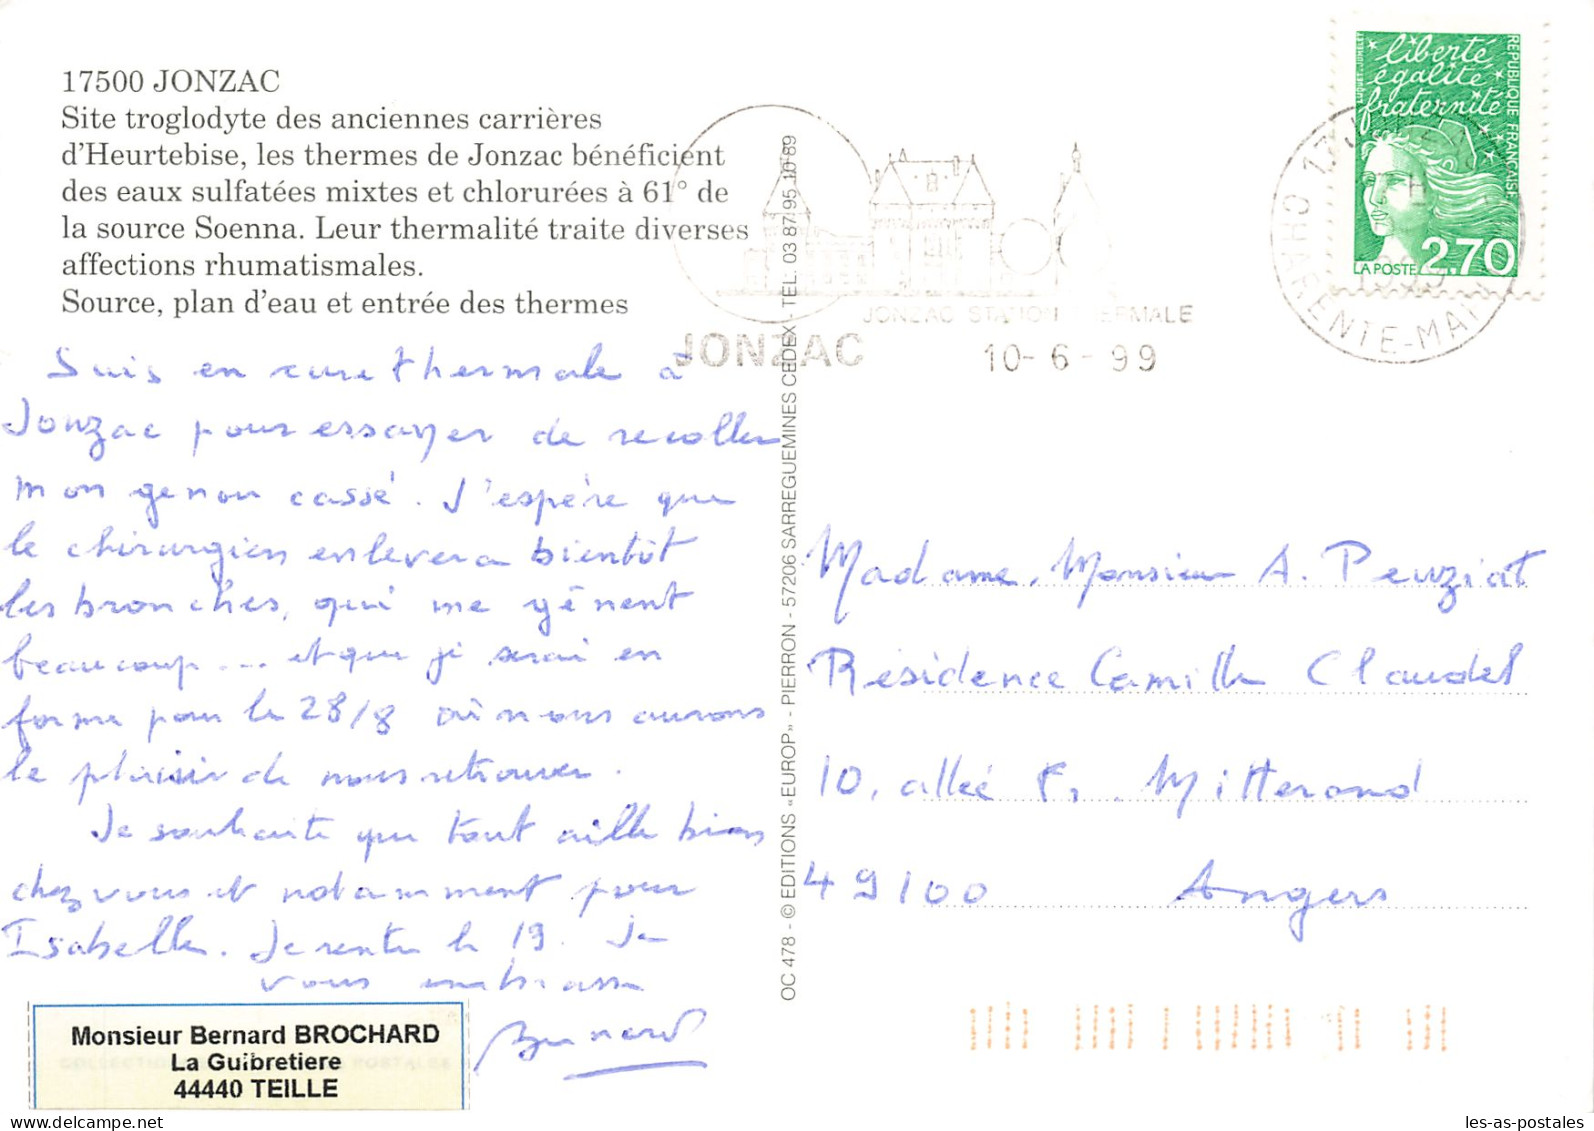 17500 JONZAC
Site troglodyte des anciennes carrières
d'Heurtebise, les thermes de Jonzac bénéficient
des eaux sulfatées mixtes et chlorurées à 61° de
la source Soenna. Leur thermalité traite diverses
affections rhumatismales.
Source, plan d'eau et entrée des thermes
Suis en cure thermale à
Jonzac pour essayer de recoller
mon genou cassé. J'espère que
le chirurgien enlevera bientôt
les broches, qui me gênent
beaucoup... et que je serai en
forme pour le 28/8 où nous aurons
le plaisir de nous retrouver.
Je souhaite que tout aille bien
chez vous et notamment pour
Isabelle. Je rentre le 19. Je
vous embrasse
Bernard
Monsieur Bernard BROCHARD
La Guibretiere
44440 TEILLE
OC 478 - © EDITIONS «EUROP» - PIERRON - 57206 SARREGUEMINES CEDEX - TEL. 03 87 95 10 89
JONZAC
JONZAC STATION THERMALE
10-6-99
CHARENTE-MAR
liberté
égalité
fraternité
RÉPUBLIQUE FRANÇAISE
LA POSTE 2,70
Madame, Monsieur A. Peuziat
Résidence Camille Claudel
10, allée F. Mitterand
49100 Angers
les-as-postales
© delcampe.net